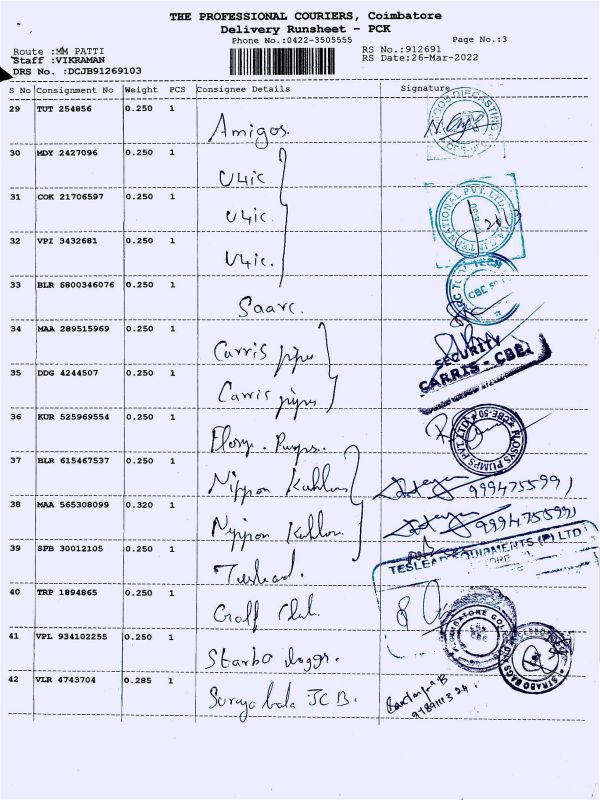 THE PROFESSIONAL COURIERS, Coimbatore
Delivery Runsheet - PCK
Phone No.:0422-3505555 Page No.:3
Route :MM PATTI RS No.:912691
Staff :VIKRAMAN RS Date:26-Mar-2022
DRS No. :DCJB91269103
S No Consignment No Weight PCS Consignee Details Signature
29 TUT 254856 0.250 1
Amigos.
30 MDY 2427096 0.250 1
U4ic
31 COK 21706597 0.250 1
U4ic.
32 VPI 3432681 0.250 1
U4ic.
33 BLR 6800346076 0.250 1
CBE
Saarc.
34 MAA 289515969 0.250 1
Carris pipes
SECURITY
CARRIS - CBE
35 DDG 4244507 0.250 1
Carris pipes
36 KUR 525969554 0.250 1
PLOSYS PUMPS PVT LTD CBE-50
37 BLR 615467537 0.250 1
Nippon 9994755991
38 MAA 565308099 0.320 1
Nyppon 9994755991
39 SPB 30012105 0.250 1
TESLEAD EQUIPMENTS (P) LTD
Teslead.
40 TRP 1894865 0.250 1
Golf Club.
41 VPL 934102255 0.250 1
Starbo bags.
STRABO BAGS
42 VLR 4743704 0.285 1
Surya bala JCB.